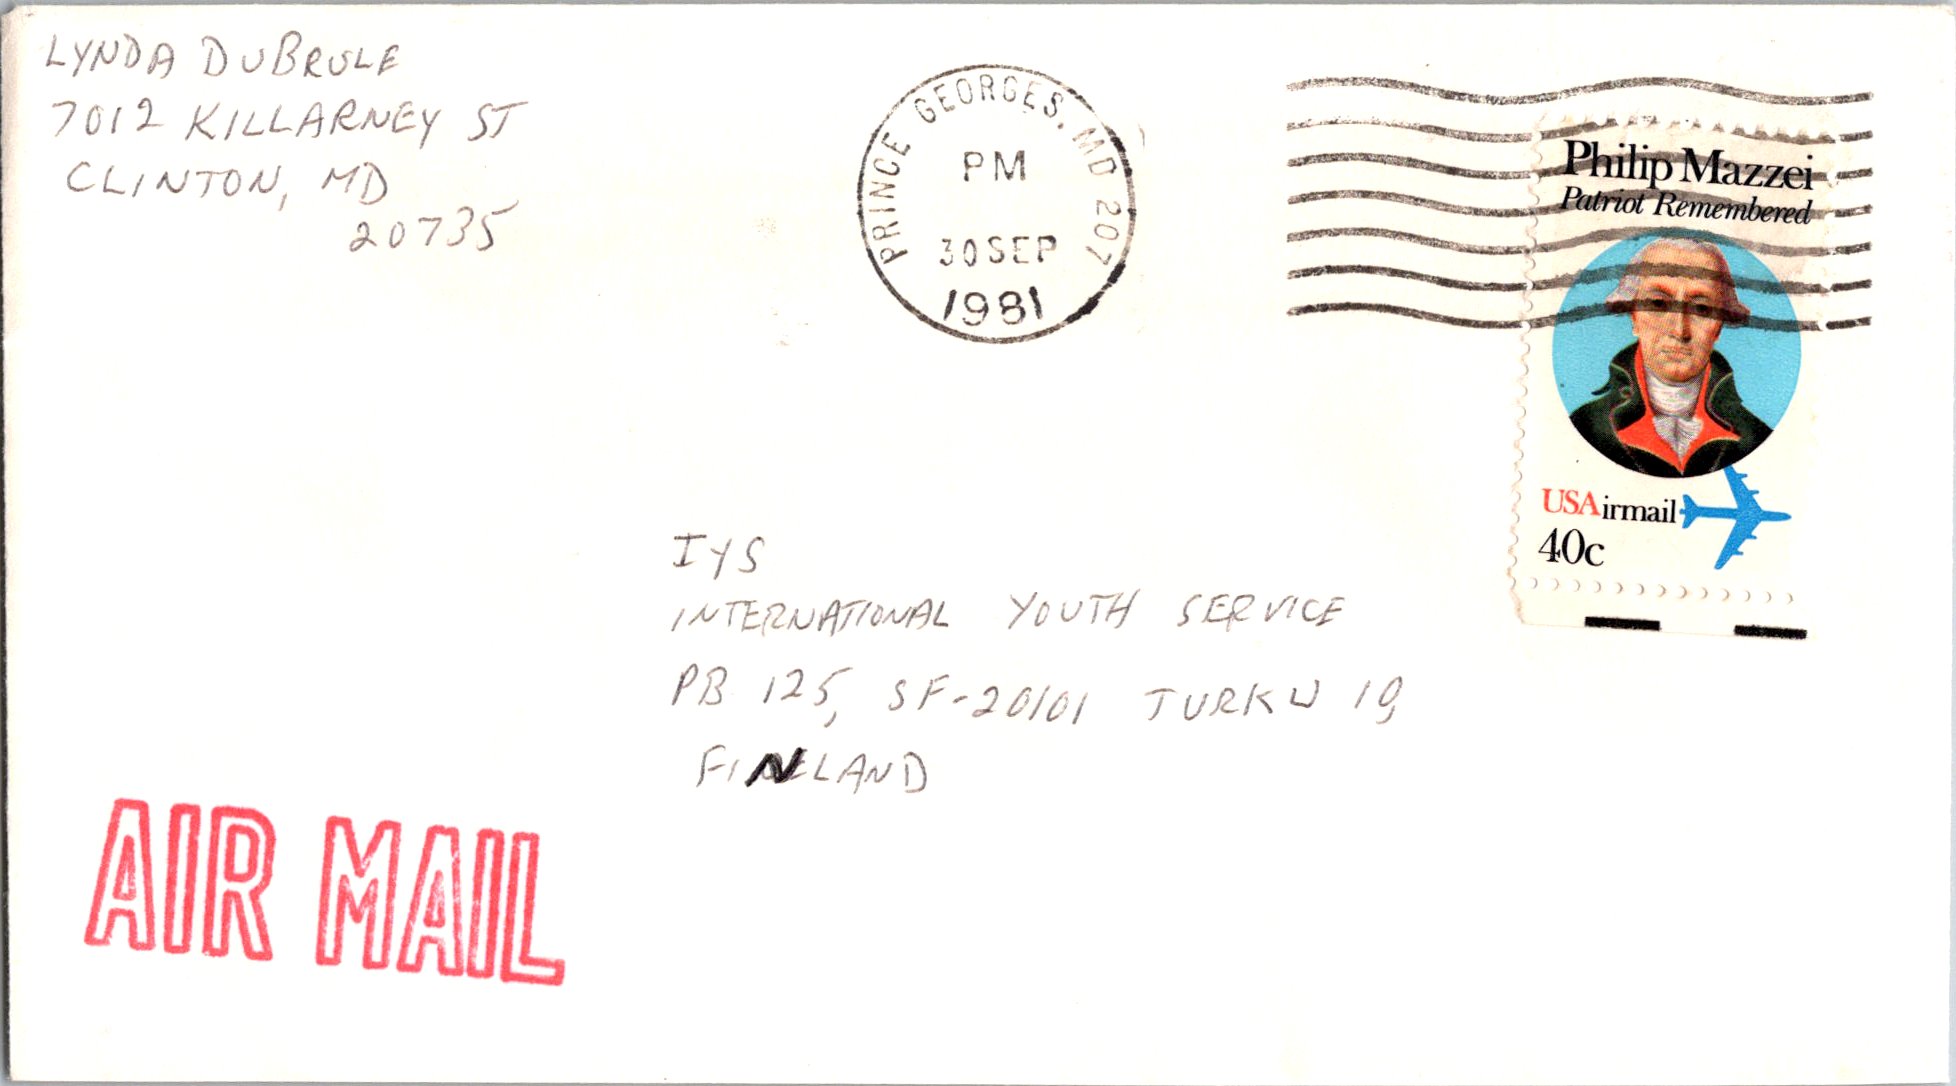 LYNDA DUBRULE
7012 KILLARNEY ST
CLINTON, MD
20735
PRINCE GEORGES, MD 207
PM
30 SEP
1981
Philip Mazzei
Patriot Remembered
USAirmail
40c
IYS
INTERNATIONAL YOUTH SERVICE
PB 125, SF-20101 TURKU 10,
FINLAND
AIR MAIL